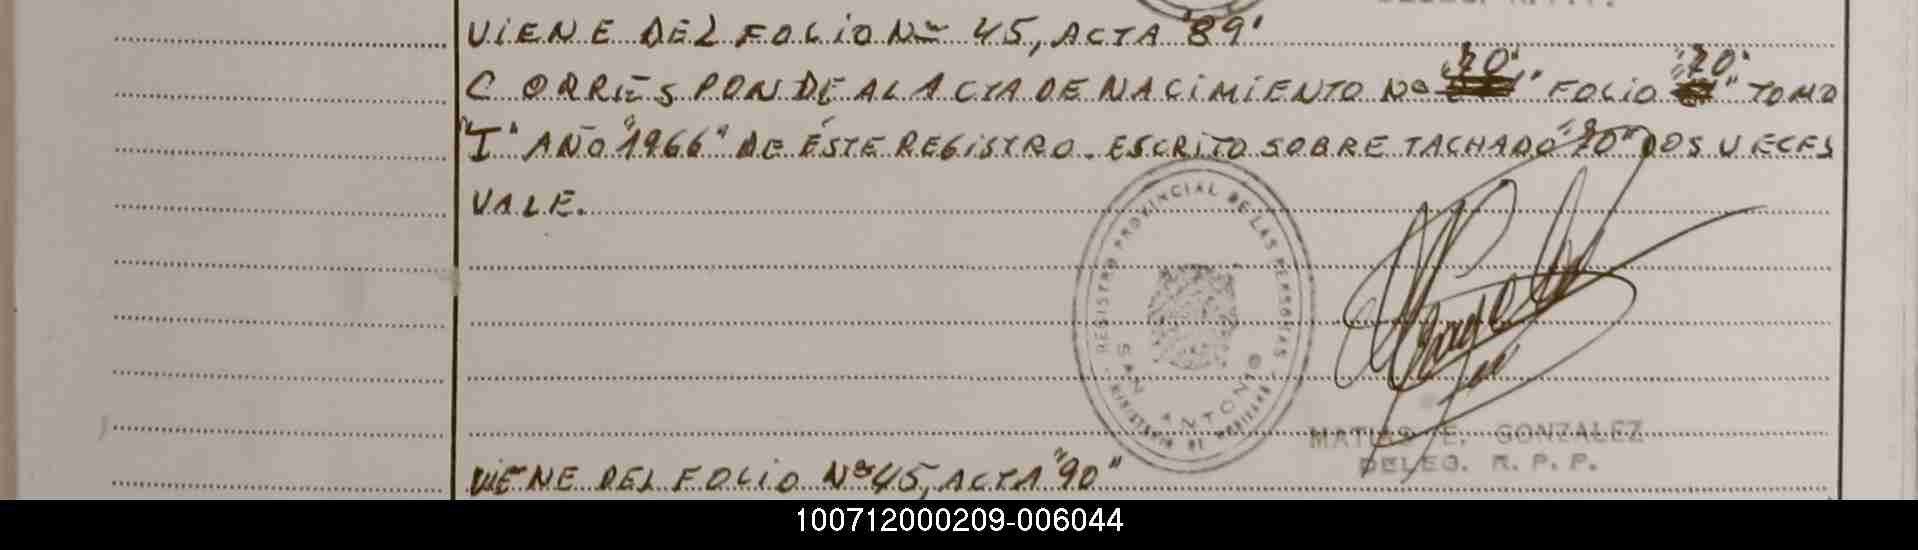 VIENE DEL FOLIO Nº 45, ACTA "89"
CORRESPONDE AL ACTA DE NACIMIENTO Nº "20" FOLIO "20" TOMO
"I" AÑO "1966" DE ÉSTE REGISTRO. ESCRITO SOBRE TACHADO "20" DOS VECES
VALE.
REGISTRO PROVINCIAL DE LAS PERSONAS
SAN ANTONIO
MINISTERIO DE GOBIERNO
MATIAS E. GONZALEZ
DELEG. R. P. P.
VIENE DEL FOLIO Nº 45, ACTA "90"
100712000209-006044